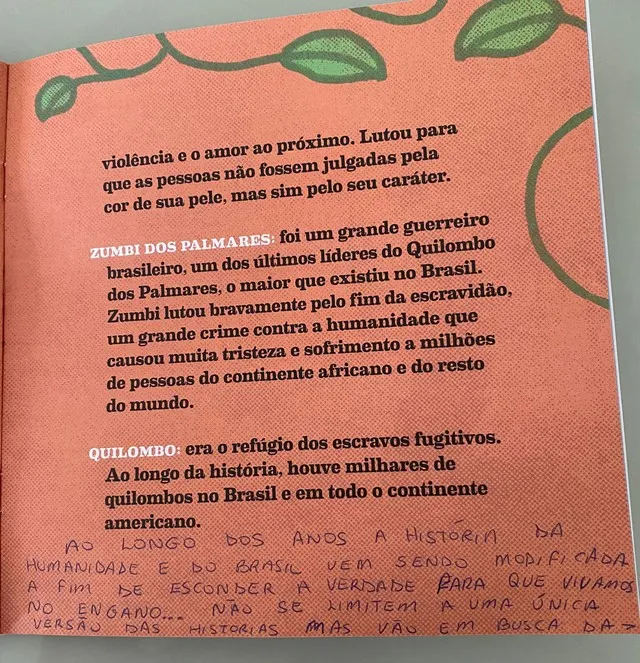 violência e o amor ao próximo. Lutou para
que as pessoas não fossem julgadas pela
cor de sua pele, mas sim pelo seu caráter.
ZUMBI DOS PALMARES: foi um grande guerreiro
brasileiro, um dos últimos líderes do Quilombo
dos Palmares, o maior que existiu no Brasil.
Zumbi lutou bravamente pelo fim da escravidão,
um grande crime contra a humanidade que
causou muita tristeza e sofrimento a milhões
de pessoas do continente africano e do resto
do mundo.
QUILOMBO: era o refúgio dos escravos fugitivos.
Ao longo da história, houve milhares de
quilombos no Brasil e em todo o continente
americano.
AO LONGO DOS ANOS A HISTÓRIA DA
HUMANIDADE E DO BRASIL VEM SENDO MODIFICADA
A FIM DE ESCONDER A VERDADE PARA QUE VIVAMOS
NO ENGANO... NÃO SE LIMITEM A UMA ÚNICA
VERSÃO DAS HISTÓRIAS MAS VÃO EM BUSCA DA→